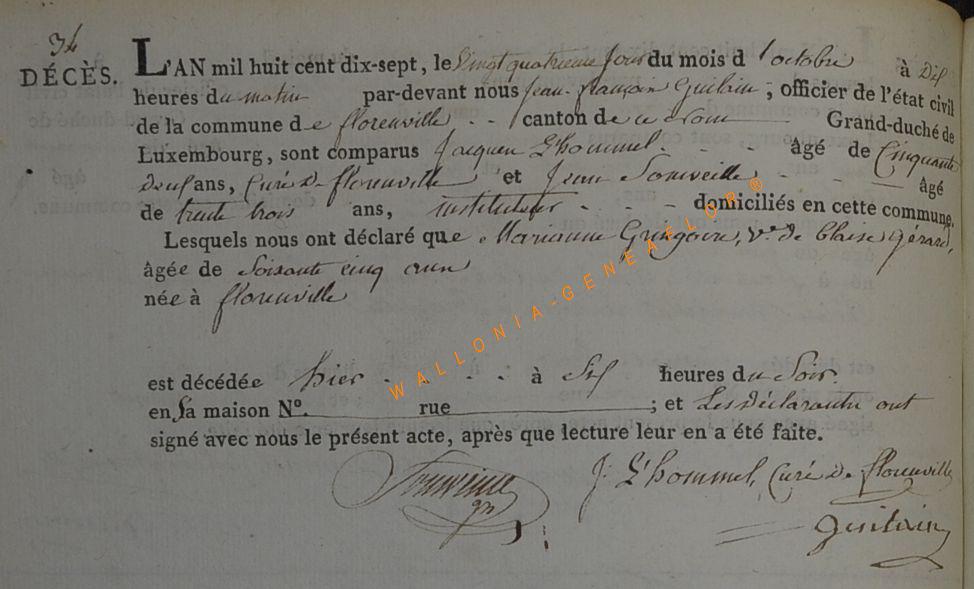 34
DÉCÈS.
L'AN mil huit cent dix-sept, le vingt quatrieme jour du mois d'octobre à Dix
heures du matin par-devant nous jean-françois Guilain ; officier de l'état civil
de la commune de florenville - - canton de ce nom Grand-duché de
Luxembourg, sont comparus Jacques L'hommel. - - - âgé de Cinquante
deux ans, Curé De florenville et Jean - - - âgé
de trente trois ans, instituteur - - - domiciliés en cette commune.
Lesquels nous ont déclaré que Marianne Gringoire, Ve. de blaise gérard,
âgée de Soixante cinq ans
née à florenville
est décédée hier - - - - à Six heures du Soir.
en Sa maison N°. rue ; et Les Déclarants ont
signé avec nous le présent acte, après que lecture leur en a été faite.
J. L'hommel, Curé De florenville
guilain
WALLONIA-GENEAELOR®